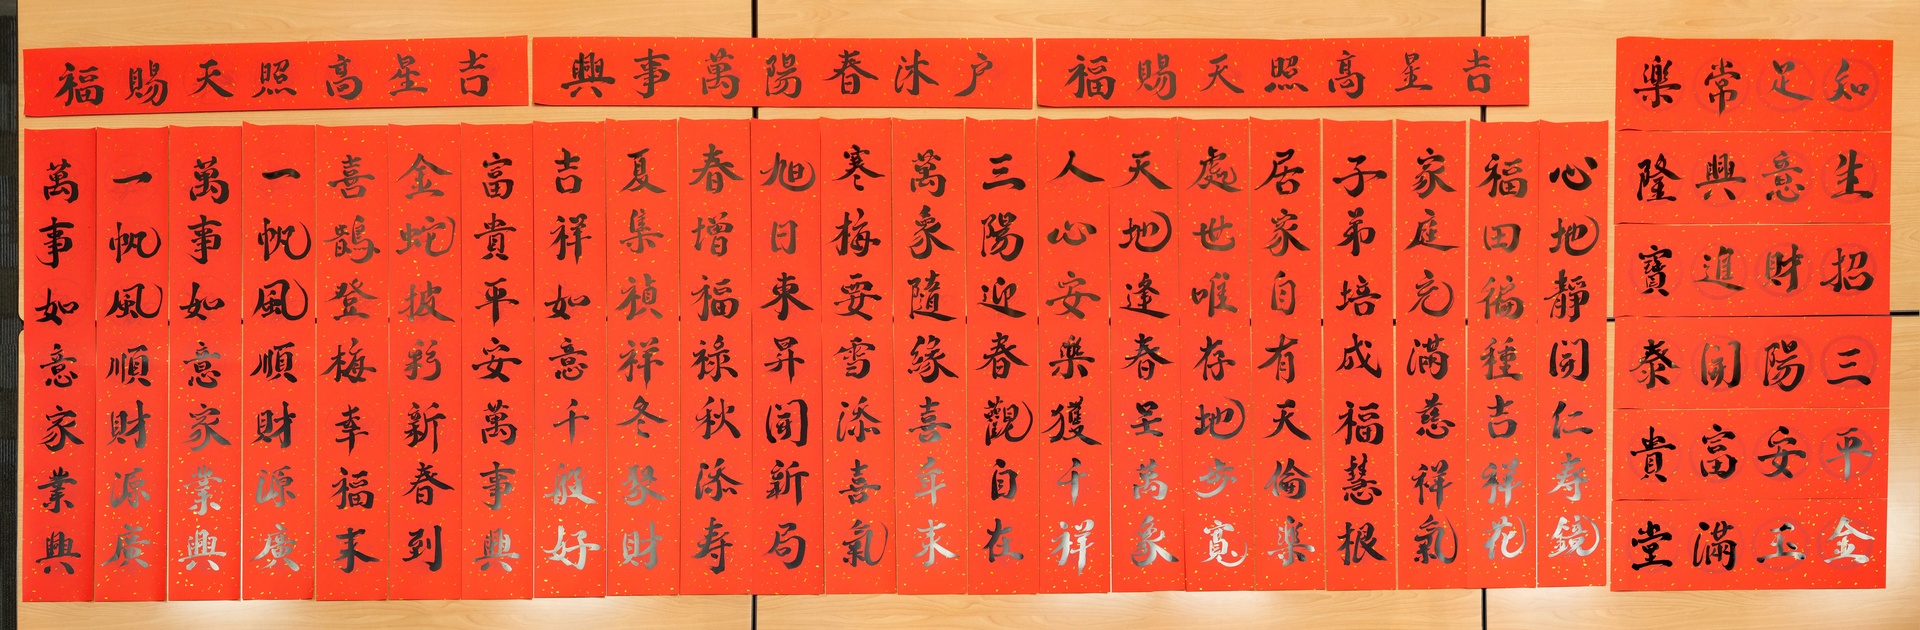 知足常楽
生意興隆
招財進寶
三陽開泰
平安富貴
金玉滿堂
吉星高照天賜福
户沐春陽萬事興
吉星高照天賜福
心地靜開仁寿鏡
福田徧種吉祥花
家庭充滿慈祥氣
子弟培成福慧根
居家自有天倫楽
處世唯存地步寬
天地逢春呈萬象
人心安樂獲千祥
三陽迎春觀自在
萬象隨緣喜年来
寒梅要雪添喜氣
旭日東昇開新局
春增福祿秋添寿
夏集禎祥冬聚財
吉祥如意千般好
富貴平安萬事興
金蛇披彩新春到
喜鵲登梅幸福来
一帆風順財源廣
萬事如意家業興
一帆風順財源廣
萬事如意家業興